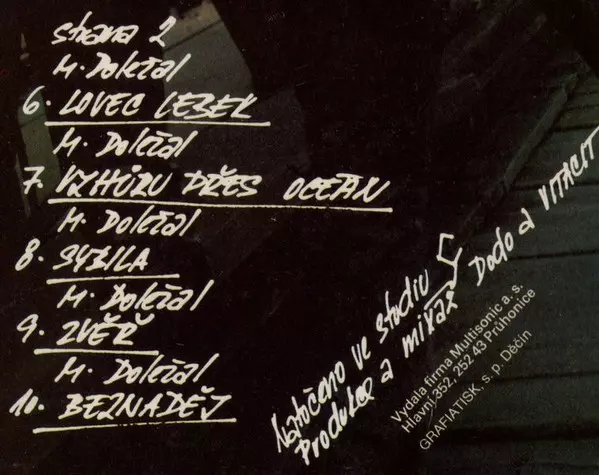 strana 2
M. Doležal
6. LOVEC LEBEK
M. Doležal
7. VZHŮRU PŘES OCEÁN
M. Doležal
8. SYBILA
M. Doležal
9. ZVĚŘ
M. Doležal
10. BEZNADĚJ
Natočeno ve studiu
Produkce a mixáž Dodo a VITACIT
Vydala firma Multisonic a. s.
Hlavní 352, 252 43 Průhonice
GRAFIATISK, s. p. Děčín